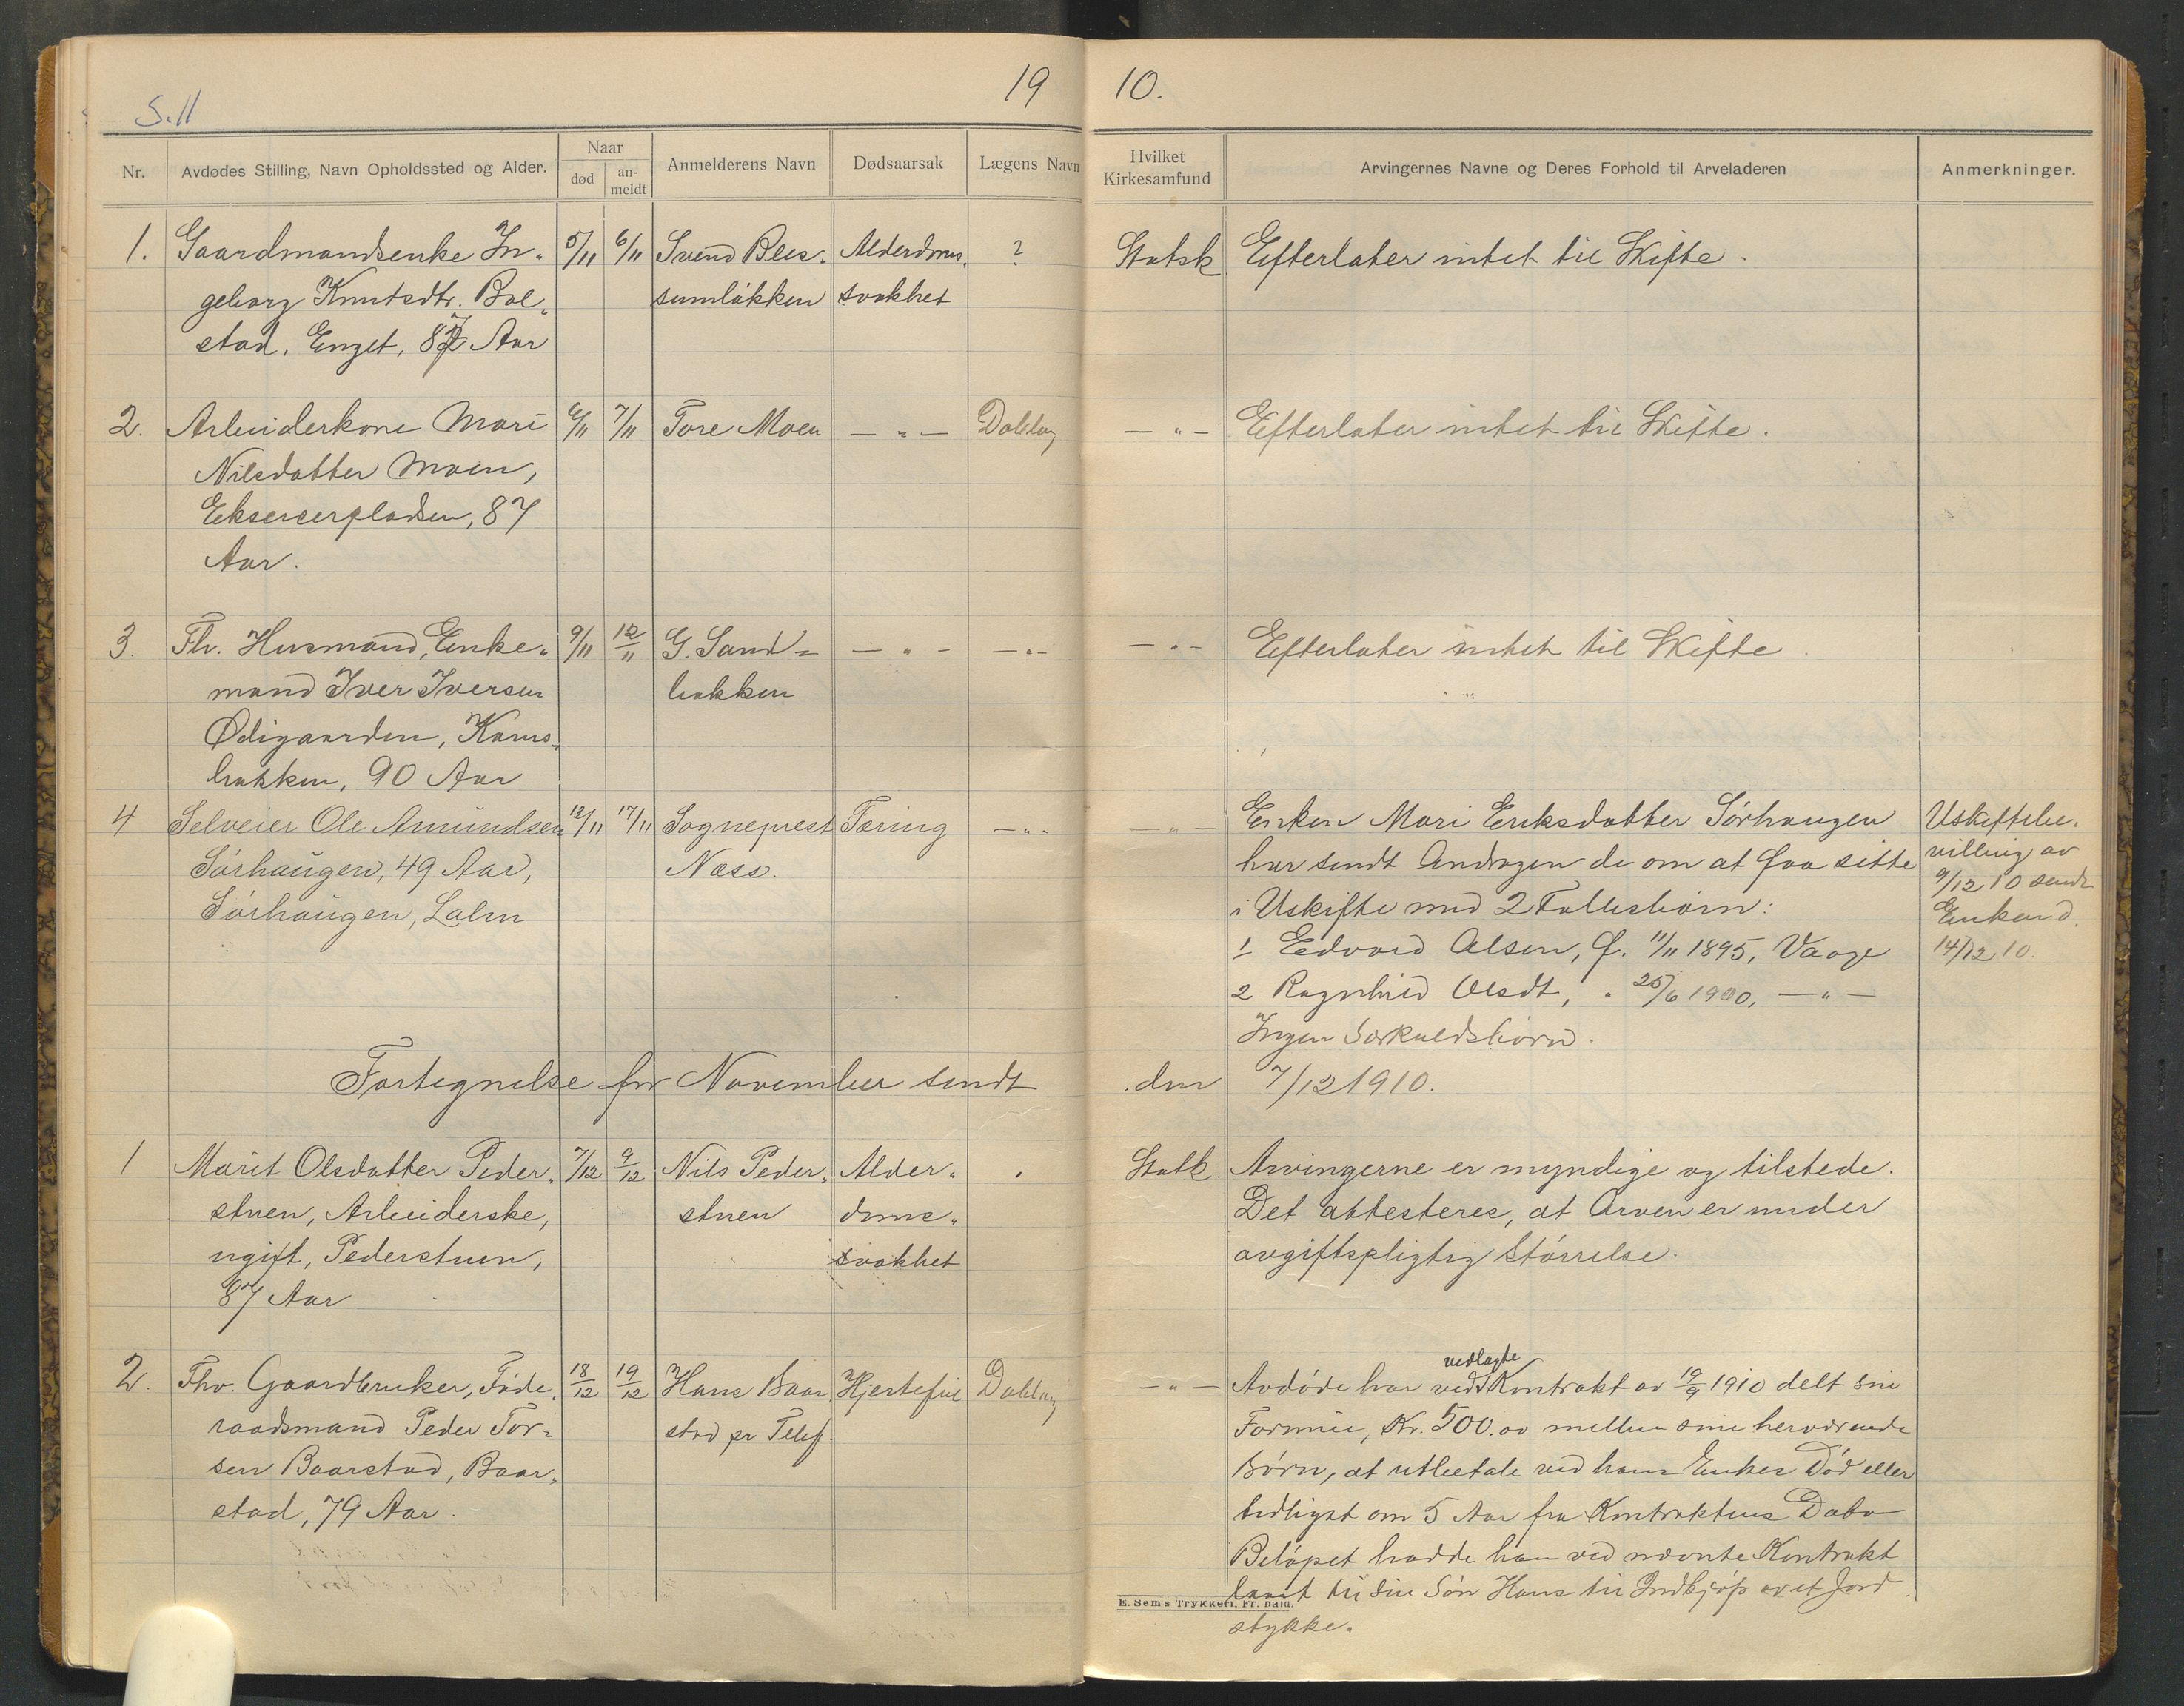 S.11
19 10.
Nr. Avdødes Stilling, Navn Opholdssted og Alder. Naar død an-meldt Anmelderens Navn Dødsaarsak Lægens Navn Hvilket Kirkesamfund Arvingernes Navne og Deres Forhold til Arveladeren Anmerkninger.
1. Gaardmandsenke In- 5/11 6/11 Svend Bles- Alderdoms- ? Statsk. Efterlater intet til Skifte.
geborg Knutsdtr. Bol- sumløkken svakhet
stad, Enget, 87 Aar
2. Arbeiderkone Mari 6/11 7/11 Tore Moen — „ — — „ — Efterlater intet til Skifte.
Nilsdatter Moen,
Eksercerpladsen, 87
Aar.
3. Fh. Husmand, Enke- 9/11 12/11 G. Sand- — „ — — „ — — „ — Efterlater intet til Skifte.
mand Iver Iversen bakken
Ødigaarden,
bakken, 90 Aar
4 Selveier Ole Amundsen 12/11 17/11 Sogneprest Tæring — „ — — „ — Enken Mari Eriksdatter Sørhaugen Uskiftebe-
Sørhaugen, 49 Aar, Næss. har sendt Andragende om at faa sitte villing av
Sørhaugen, Lalm i Uskifte med 2 Fællesbørn: 9/12 10 sendt
1 Edvard Olsen, f. 11/11 1895, Vaage Enken d.
2 Ragnhild Olsdt, „ 25/6 1900, — „ — 14/12 10.
Ingen Særkuldsbørn.
Fortegnelse for November sendt den 7/12 1910.
1 Marit Olsdatter Peder- 7/12 9/12 Nils Peder- Alder- Statk. Arvingerne er myndige og tilstede.
stuen, Arbeiderske, stuen doms- Det attesteres, at Arven er under
ugift, Pederstuen, svakhet avgiftspligtig Størrelse.
87 Aar
2. Fhv. Gaardbruker, Føde- 18/12 19/12 Hans Baar- Hjertefeil — „ — Avdøde har ved vedlagte Kontrakt av 19/9 1910 delt sin
raadsmand Peder Tor- stad pr Telef. Formue, Kr. 500.00 mellem sine herværende
sen Baarstad, Baar- Børn, at utbetale ved hans Enkes Død eller
stad, 79 Aar. tidligst om 5 Aar fra Kontraktens Dato
Beløpet hadde han ved nævnte Kontrakt
laant til sin Søn Hans til Indkjøp av et Jord
stykke.
E. Sem's Trykkeri, Fr.hald.